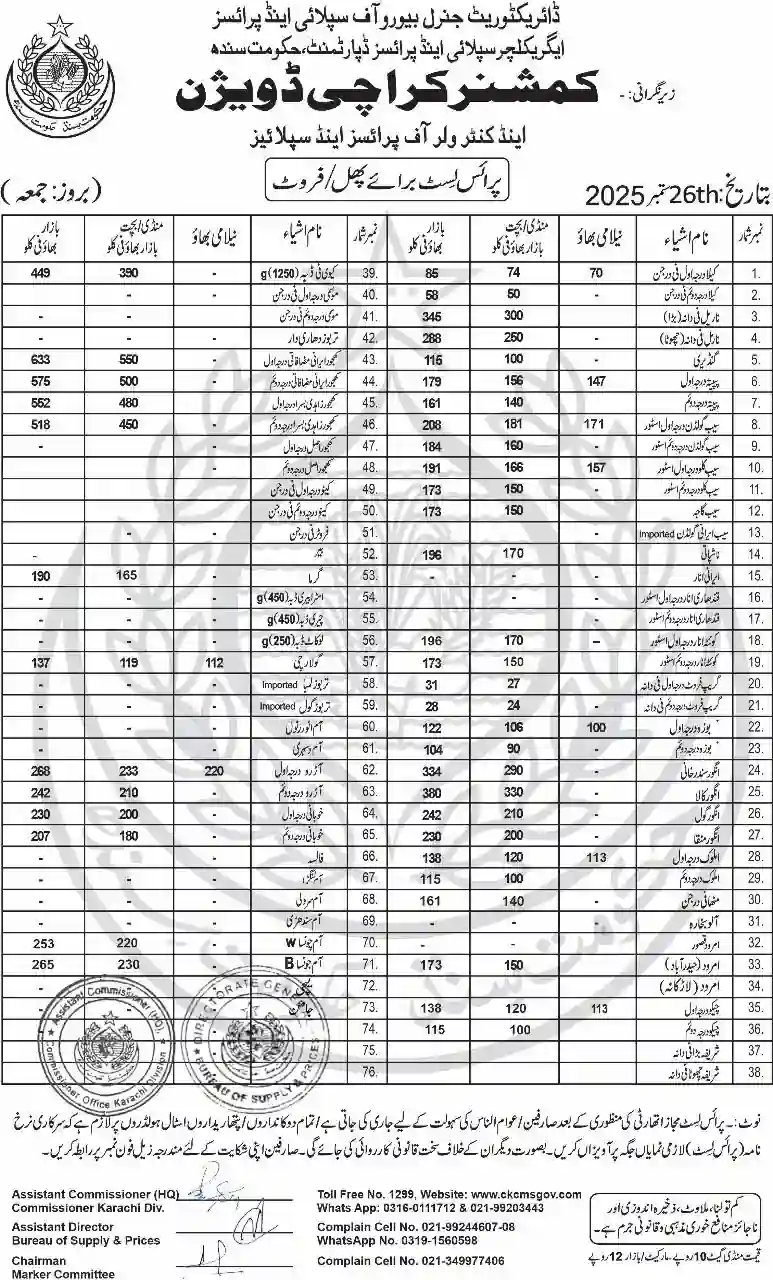 ڈائریکٹوریٹ جنرل بیورو آف سپلائی اینڈ پرائسز
ایگریکلچر سپلائی اینڈ پرائسز ڈپارٹمنٹ، حکومت سندھ
زیرنگرانی: - کمشنر کراچی ڈویژن
اینڈ کنٹرولر آف پرائسز اینڈ سپلائیز
پرائس لسٹ برائے پھل/فروٹ
بتاریخ: 26th ستمبر 2025
(بروز: جمعہ)
نمبر شمار نام اشیاء نیلامی بھاؤ منڈی/بچت بازار بھاؤ فی کلو بازار بھاؤ فی کلو
1. کیلا درجہ اول فی درجن 70 74 85
2. کیلا درجہ دوئم فی درجن - 50 58
3. ناریل فی دانہ (بڑا) 300 345
4. ناریل فی دانہ (چھوٹا) 250 288
5. گنڈیری - 100 115
6. پپیتہ درجہ اول 147 156 179
7. پپیتہ درجہ دوئم 140 161
8. سیب گولڈن درجہ اول اسٹور 171 181 208
9. سیب گولڈن درجہ دوئم اسٹور - 160 184
10. سیب کلو درجہ اول اسٹور 157 166 191
11. سیب کلو درجہ دوئم اسٹور - 150 173
12. سیب گاجہ 150 173
13. سیب ایرانی گولڈن Imported -
14. ناشپاتی 170 196
15. ایرانی انار - - -
16. قندھاری انار درجہ اول اسٹور
17. قندھاری انار درجہ دوئم اسٹور
18. کوئٹہ انار درجہ اول اسٹور – 170 196
19. کوئٹہ انار درجہ دوئم اسٹور 150 173
20. گریپ فروٹ درجہ اول فی دانہ - 27 31
21. گریپ فروٹ درجہ دوئم فی دانہ - 24 28
22. بوزہ درجہ اول 100 106 122
23. بوزہ درجہ دوئم 90 104
24. انگور سندرخانی - 290 334
25. انگور کالا - 330 380
26. انگور گول - 210 242
27. انگور منقا - 200 230
28. املوک درجہ اول 113 120 138
29. املوک درجہ دوئم - 100 115
30. مٹھا فی درجن - 140 161
31. آلو بخارہ - - -
32. امرود قصور - - -
33. امرود (حیدرآباد) 150 173
34. امرود (لاڑکانہ)
35. چیکو درجہ اول 113 120 138
36. چیکو درجہ دوئم 100 115
37. شریفہ بڑا فی دانہ
38. شریفہ چھوٹا فی دانہ
نمبر شمار نام اشیاء نیلامی بھاؤ منڈی/بچت بازار بھاؤ فی کلو بازار بھاؤ فی کلو
39. کیوی فی ڈبہ g(1250) - 390 449
40. موسمی درجہ اول فی درجن - - -
41. موسمی درجہ دوئم فی درجن - -
42. تربوز دھاری دار - - -
43. کھجور ایرانی مضافاتی درجہ اول 550 633
44. کھجور ایرانی مضافاتی درجہ دوئم - 500 575
45. کھجور زاہدی بسرا درجہ اول - 480 552
46. کھجور زاہدی بسرا درجہ دوئم - 450 518
47. کھجور اصل درجہ اول -
48. کھجور اصل درجہ دوئم -
49. کینو درجہ اول فی درجن
50. کینو درجہ دوئم فی درجن
51. فروٹر فی درجن - -
52. -
53. گرما 165 190
54. اسٹرابیری ڈبہ g(450)
55. چیری ڈبہ g(450)
56. لوکاٹ ڈبہ g(250)
57. گولارچی 112 119 137
58. تربوز لمبا Imported - - -
59. تربوز گول Imported - - -
60. آم انور رٹول - - -
61. آم دسہری - - -
62. آڑو درجہ اول 220 233 268
63. آڑو درجہ دوئم - 210 242
64. خوبانی درجہ اول - 200 230
65. خوبانی درجہ دوئم - 180 207
66. فالسہ - - -
67. آم لنگڑا - - -
68. آم سرولی - - -
69. آم سندھڑی - - -
70. آم چونسا W - 220 253
71. آم چونسا B - 230 265
72. لیچی -
73. جامن
74.
75.
76.
Assistant Commissioner (HQ),
Commissioner Office Karachi Division
DIRECTORATE GENERAL
BUREAU OF SUPPLY & PRICES
نوٹ:۔ پرائس لسٹ مجاز اتھارٹی کی منظوری کے بعد صارفین/عوام الناس کی سہولت کے لیے جاری کی جاتی ہے/تمام دوکانداروں/پتھاریداروں/اسٹال ہولڈروں پر لازم ہے کہ سرکاری نرخ
نامہ (پرائس لسٹ) لازمی نمایاں جگہ پر آویزاں کریں۔ بصورت دیگر ان کے خلاف سخت قانونی کارروائی کی جائے گی۔ صارفین اپنی شکایت کے لئے مندرجہ زیل فون نمبر پر رابطہ کریں۔
Assistant Commissioner (HQ)
Commissioner Karachi Div.
Assistant Director
Bureau of Supply & Prices
Chairman
Marker Committee
Toll Free No. 1299, Website: www.ckcmsgov.com
Whats App: 0316-0111712 & 021-99203443
Complain Cell No. 021-99244607-08
WhatsApp No. 0319-1560598
Complain Cell No. 021-349977406
کم تولنا، ملاوٹ، ذخیرہ اندوزی اور
ناجائز منافع خوری مذہبی و قانونی جرم ہے۔
قیمت منڈی گیٹ 10 روپے، مارکیٹ/بازار 12 روپے